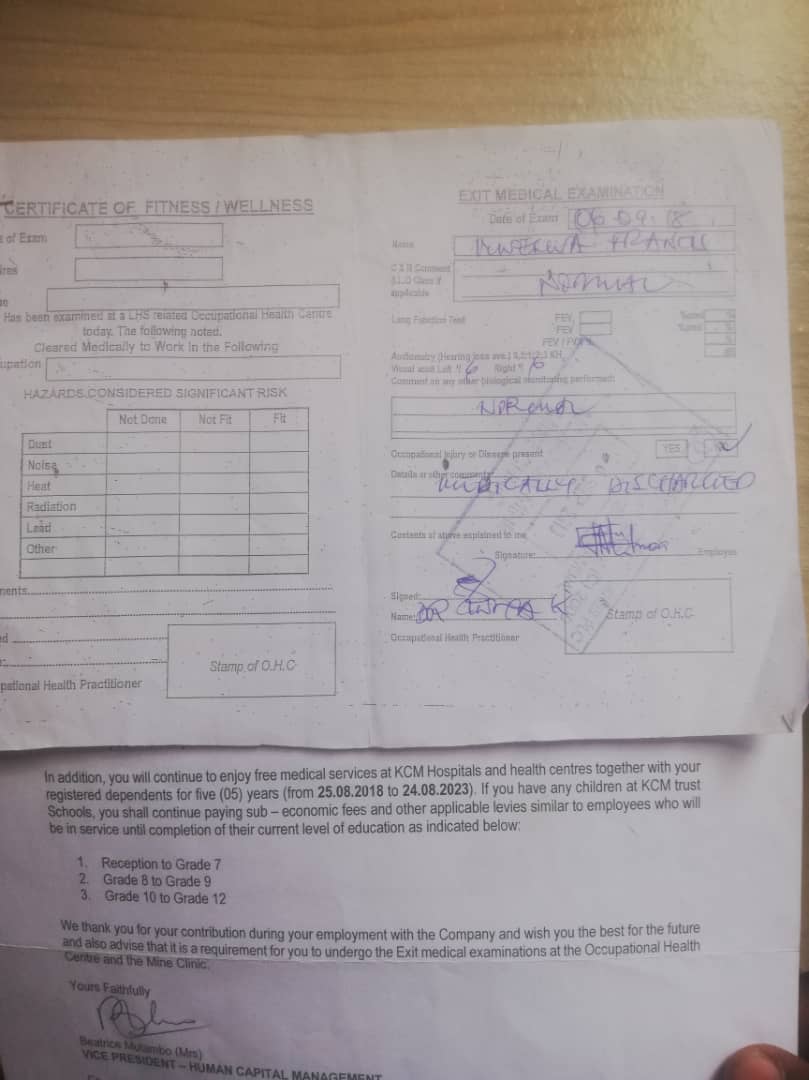 CERTIFICATE OF FITNESS / WELLNESS
of Exam
Has been examined at a LHS related Occupational Health Centre
today. The following noted.
Cleared Medically to Work in the Following
upation
HAZARDS CONSIDERED SIGNIFICANT RISK
Not Done Not Fit Fit
Dust
Noise
Heat
Radiation
Lead
Other
ments
Stamp of O.H.C
pational Health Practitioner
EXIT MEDICAL EXAMINATION
Date of Exam 06.09.18
Name FRANCIS
C X R Comment
applicable
NORMAL
Lung Function Test
FEV
FEV
Audiometry (Hearing loss ave.)
Left 6 Right 6
Comment on any other biological monitoring performed
NORMAL
Occupational Injury or Disease present YES
Details or other comments
MEDICALLY DISCHARGED
Contents of above explained to me
Signature: Employee
Signed:
Name: DR
Stamp of O.H.C
Occupational Health Practitioner
In addition, you will continue to enjoy free medical services at KCM Hospitals and health centres together with your
registered dependents for five (05) years (from 25.08.2018 to 24.08.2023). If you have any children at KCM trust
Schools, you shall continue paying sub – economic fees and other applicable levies similar to employees who will
be in service until completion of their current level of education as indicated below:
1. Reception to Grade 7
2. Grade 8 to Grade 9
3. Grade 10 to Grade 12
We thank you for your contribution during your employment with the Company and wish you the best for the future
and also advise that it is a requirement for you to undergo the Exit medical examinations at the Occupational Health
Centre and the Mine Clinic.
Yours Faithfully
Beatrice Mutambo (Mrs)
VICE PRESIDENT – HUMAN CAPITAL MANAGEMENT